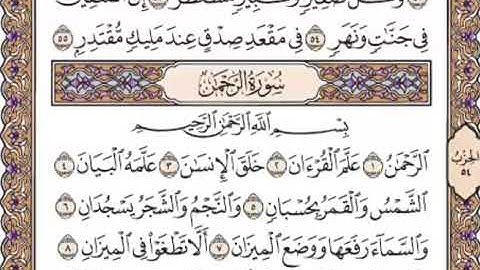 وَكُلُّ صَغِيرٍ وَكَبِيرٍ مُّسْتَطَرٌ ٥٣ إِنَّ ٱلْمُتَّقِينَ
فِي جَنَّٰتٍ وَنَهَرٍ ٥٤ فِي مَقْعَدِ صِدْقٍ عِندَ مَلِيكٍ مُّقْتَدِرٍ ٥٥
سُورَةُ الرَّحْمَٰن
بِسْمِ ٱللَّهِ ٱلرَّحْمَٰنِ ٱلرَّحِيمِ
ٱلرَّحْمَٰنُ ١ عَلَّمَ ٱلْقُرْءَانَ ٢ خَلَقَ ٱلْإِنسَٰنَ ٣ عَلَّمَهُ ٱلْبَيَانَ ٤
ٱلشَّمْسُ وَٱلْقَمَرُ بِحُسْبَانٍ ٥ وَٱلنَّجْمُ وَٱلشَّجَرُ يَسْجُدَانِ ٦
وَٱلسَّمَآءَ رَفَعَهَا وَوَضَعَ ٱلْمِيزَانَ ٧ أَلَّا تَطْغَوْا۟ فِي ٱلْمِيزَانِ ٨
الحِزْبُ
٥٤